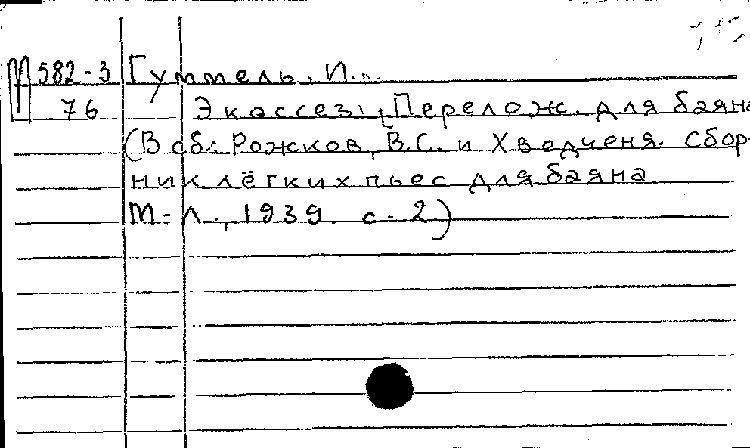 М 582-3 Гуммель, И.
76 Экоссез; Перелож. для баяна
(В сб.: Рожков, В.С. и Хведченя. Сбор-
ник лёгких пьес для баяна
М.-Л., 1939. с. 2)